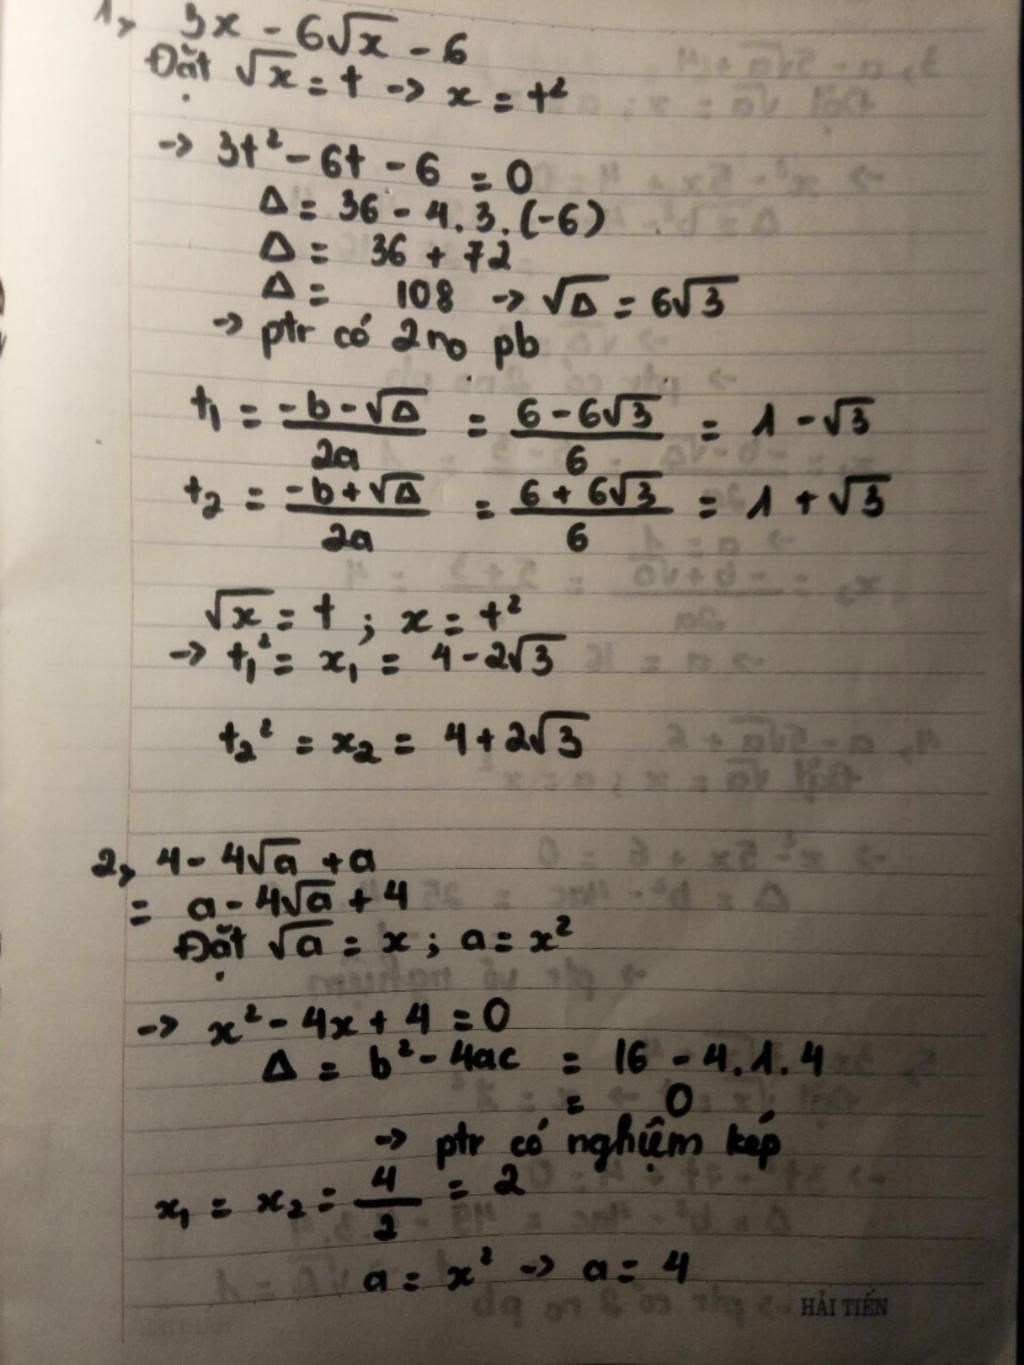 1, 3x - 6√x - 6
Đặt √x = t -> x = t²
-> 3t² - 6t - 6 = 0
Δ = 36 - 4.3.(-6)
Δ = 36 + 72
Δ = 108 -> √Δ = 6√3
-> ptr có 2 no pb
t₁ = (-b - √Δ)/2a = (6 - 6√3)/6 = 1 - √3
t₂ = (-b + √Δ)/2a = (6 + 6√3)/6 = 1 + √3
√x = t ; x = t²
-> t₁² = x₁ = 4 - 2√3
t₂² = x₂ = 4 + 2√3
2, 4 - 4√a + a
= a - 4√a + 4
Đặt √a = x ; a = x²
-> x² - 4x + 4 = 0
Δ = b² - 4ac = 16 - 4.1.4
= 0
-> ptr có nghiệm kép
x₁ = x₂ = 4/2 = 2
a = x² -> a = 4
HẢI TIẾN